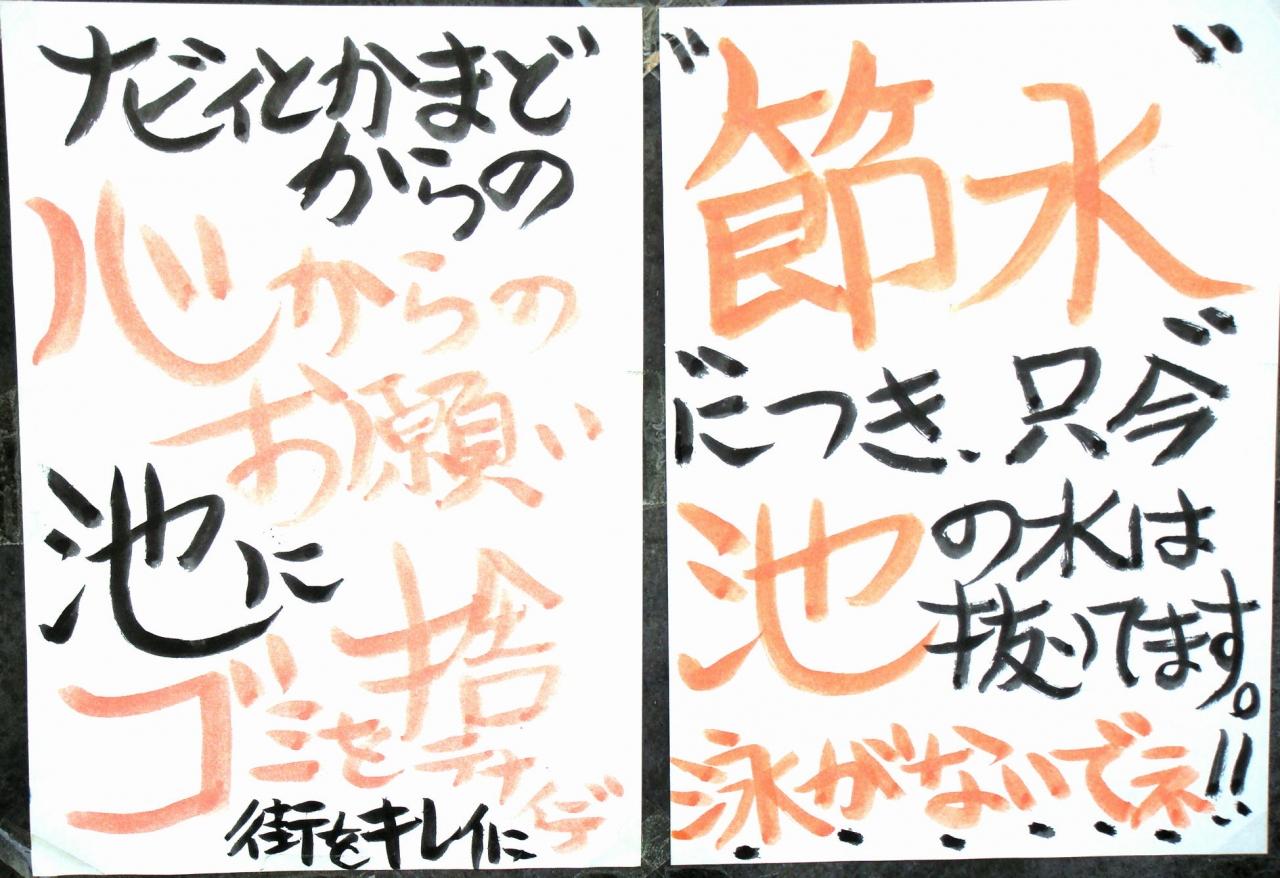 ナビィとかまど
からの
心からの
お願い
池に
ゴミを捨テナイデ
街をキレイに
"節水"
につき、只今
池の水は
抜いてます。
泳がないでネ!!